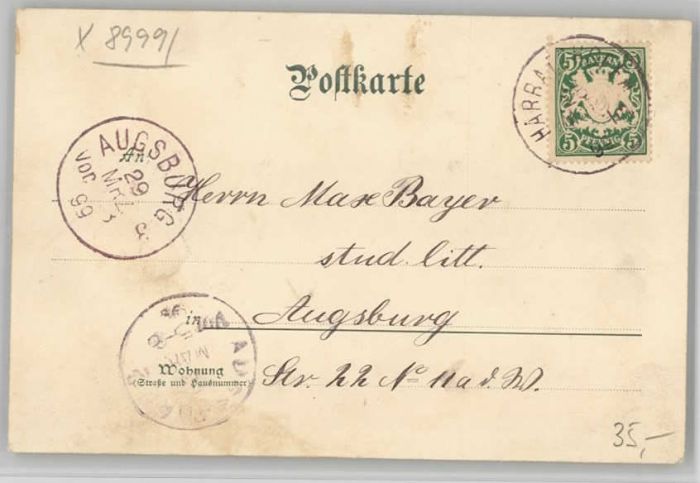 X 89991
Postkarte
5 BAYERN 5
5 PFENNIG 5
HARRA
AUGSBURG
29
MRZ
3
Vor.
99
An
Herrn Max Bayer
stud. litt.
in Augsburg
Wohnung
(Straße und Hausnummer)
Str. 22 No 11 a d. W.
35,-